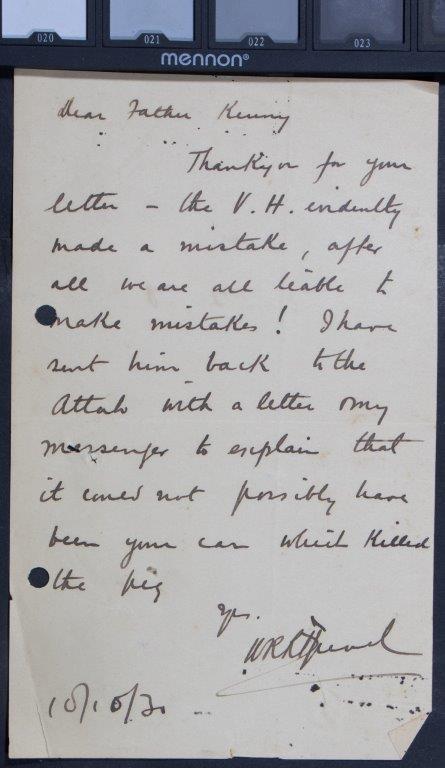 020 021 022 023
mennon®
Dear Father Kenny
Thankyou for your
letter – the V.H. evidently
made a mistake, after
all we are all liable to
make mistakes! I have
sent him back to the
with a letter & my
messenger to explain that
it could not possibly have
been your car which killed
the pig
Yrs.
10/10/30